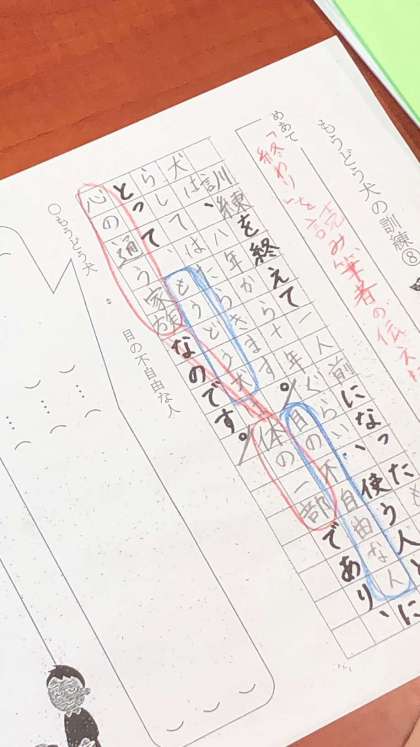 もうどう犬の訓練⑧
めあて
「終わり」を読み、筆者の伝え
訓練を終えて一人前になった
犬は、八年から十年ぐらい、使う人と
らしてはたらきます。/目の不自由な人に
とって、もうどう犬は/体の一部であり、
心の通う家族なのです。/
目の不自由な人
○もうどう犬